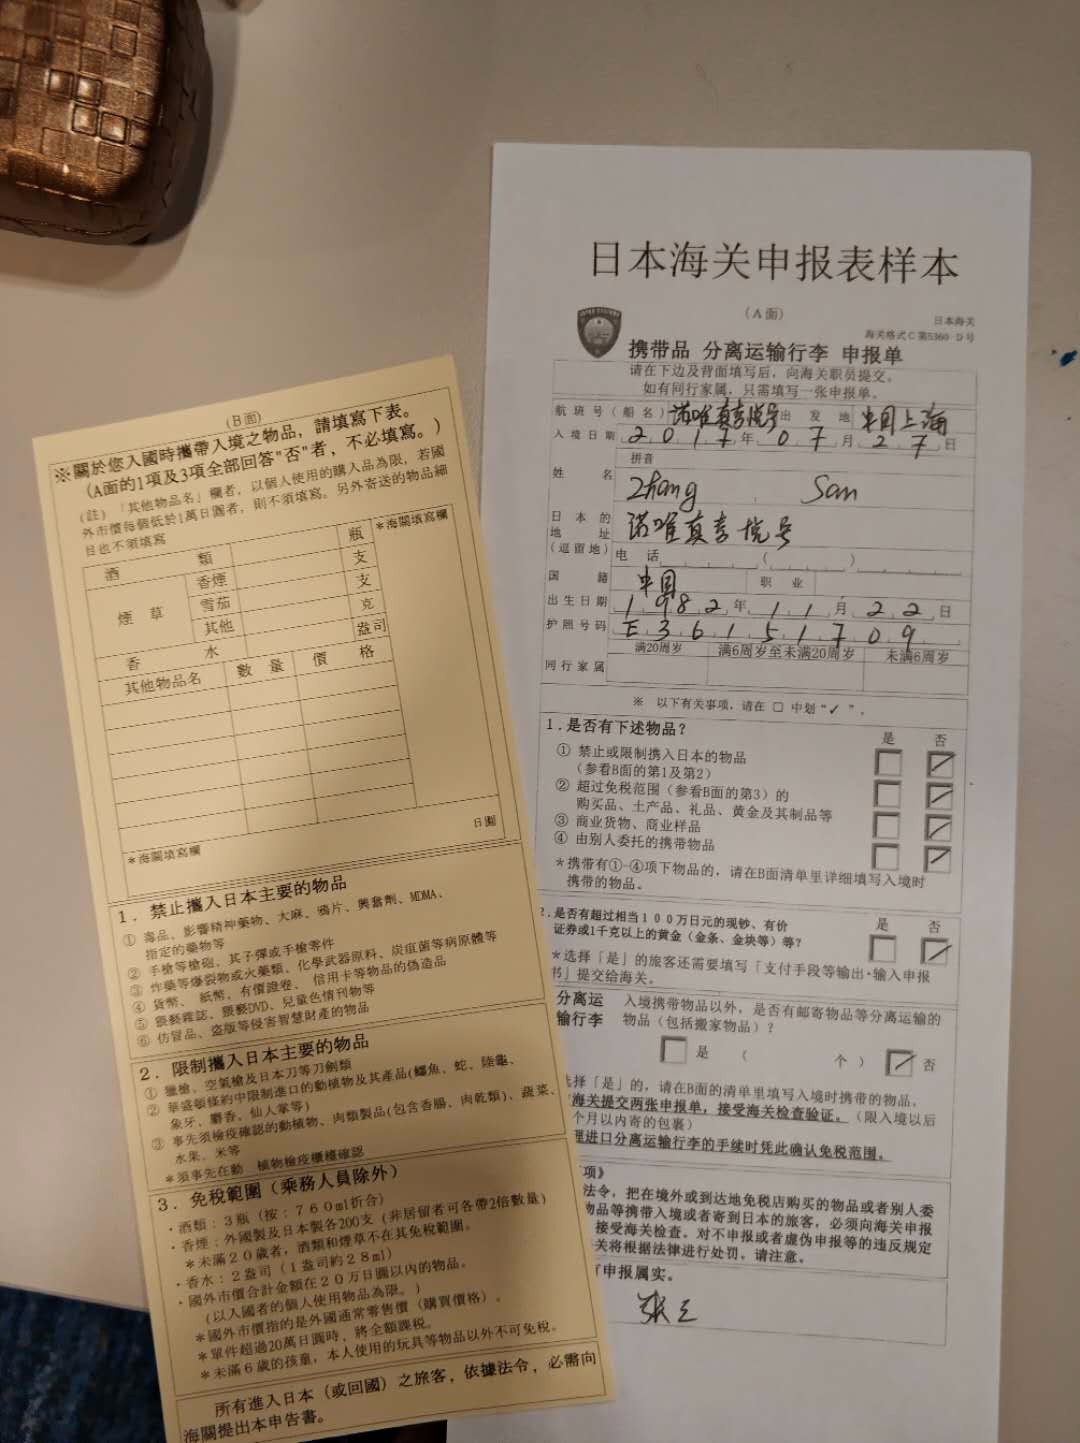 (B面)
※關於您入國時攜帶入境之物品，請填寫下表。
(A面的1項及3項全部回答"否"者，不必填寫。)
(註)「其他物品名」欄者，以個人使用的購入品為限，若國
外市價每個低於1萬日圓者，則不須填寫。另外寄送的物品細
目也不須填寫
酒 類 瓶 *海關填寫欄
煙 草 香煙 支
雪茄 支
其他 克
香 水 盎司
其他物品名 數 量 價 格
*海關填寫欄 日圓
1．禁止攜入日本主要的物品
① 毒品、影響精神藥物、大麻、鴉片、興奮劑、MDMA、
指定的藥物等
② 手槍等槍砲、其子彈或手槍零件
③ 炸藥等爆裂物或火藥類、化學武器原料、炭疽菌等病原體等
④ 貨幣、紙幣、有價證卷、信用卡等物品的偽造品
⑤ 猥褻雜誌、猥褻DVD、兒童色情刊物等
⑥ 仿冒品、盜版等侵害智慧財產的物品
2．限制攜入日本主要的物品
① 獵槍、空氣槍及日本刀等刀劍類
② 華盛頓條約中限制進口的動植物及其產品(鱷魚、蛇、陸龜、
象牙、麝香、仙人掌等)
③ 事先須檢疫確認的動植物、肉類製品(包含香腸、肉乾類)、蔬菜、
水果、米等
*須事先在動 植物檢疫櫃檯確認
3．免稅範圍（乘務人員除外）
・酒類：3瓶（按：760ml折合）
・香煙：外國製及日本製各200支 (非居留者可各帶2倍數量)
*未滿20歲者，酒類和煙草不在其免稅範圍。
・香水：2盎司（1盎司約28ml）
・國外市價合計金額在20万日圓以內的物品。
(以入國者的個人使用物品為限。)
*國外市價指的是外國通常零售價（購買價格）。
*單件超過20萬日圓時，將全額課稅。
*未滿6歲的孩童，本人使用的玩具等物品以外不可免稅。
所有進入日本（或回國）之旅客，依據法令，必需向
海關提出本申告書。
日本海关申报表样本
(A面)
日本海关
海关格式C第5360-D号
携带品 分离运输行李 申报单
请在下边及背面填写后，向海关职员提交。
如有同行家属，只需填写一张申报单。
航班号(船名) 诺唯真喜悦号 出发地 中国上海
入境日期 2017年07月27日
拼音
姓 名 Zhang San
日本的
地 址 诺唯真喜悦号
(逗留地) 电 话 ( )
国 籍 中国 职 业
出生日期 1982年11月22日
护照号码 E36151709
同行家属 满20周岁 满6周岁至未满20周岁 未满6周岁
※ 以下有关事项，请在 □ 中划“✓”。
1.是否有下述物品？ 是 否
① 禁止或限制携入日本的物品
(参看B面的第1及第2)
② 超过免税范围（参看B面的第3）的
购买品、土产品、礼品、黄金及其制品等
③ 商业货物、商业样品
④ 由别人委托的携带物品
*携带有①-④项下物品的，请在B面清单里详细填写入境时
携带的物品。
2.是否有超过相当100万日元的现钞、有价 是 否
证券或1千克以上的黄金（金条、金块等）等？
*选择「是」的旅客还需要填写「支付手段等输出·输入申报
书」提交给海关。
分离运 入境携带物品以外，是否有邮寄物品等分离运输的
输行李 物品（包括搬家物品）？
是 ( 个 ) 否
选择「是」的，请在B面的清单里填写入境时携带的物品，
海关提交两张申报单，接受海关检查验证。（限入境以后
个月以内寄的包裹）
理进口分离运输行李的手续时凭此确认免税范围。
项》
法令，把在境外或到达地免税店购买的物品或者别人委
物品等携带入境或者寄到日本的旅客，必须向海关申报
接受海关检查。对不申报或者虚伪申报等的违反规定
关将根据法律进行处罚，请注意。
申报属实。
张三